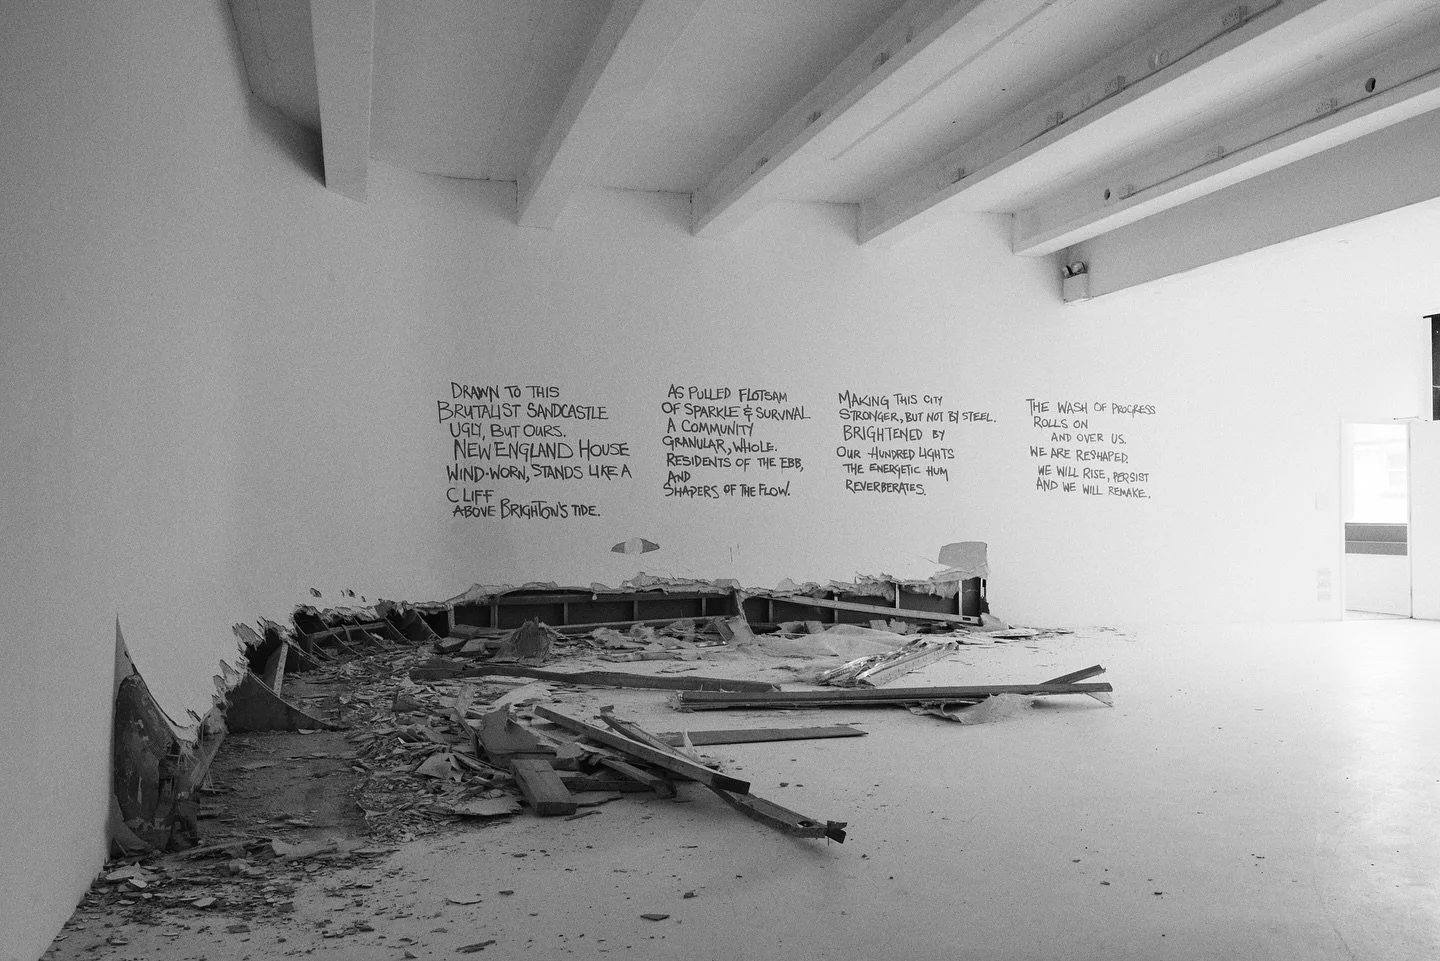 DRAWN TO THIS
BRUTALIST SANDCASTLE
UGLY, BUT OURS.
NEW ENGLAND HOUSE
WIND-WORN, STANDS LIKE A
CLIFF
ABOVE BRIGHTON'S TIDE.
AS PULLED FLOTSAM
OF SPARKLE & SURVIVAL
A COMMUNITY
GRANULAR, WHOLE.
RESIDENTS OF THE EBB,
AND
SHAPERS OF THE FLOW.
MAKING THIS CITY
STRONGER, BUT NOT BY STEEL.
BRIGHTENED BY
OUR HUNDRED LIGHTS
THE ENERGETIC HUM
REVERBERATES.
THE WASH OF PROGRESS
ROLLS ON
AND OVER US.
WE ARE RESHAPED.
WE WILL RISE, PERSIST
AND WE WILL REMAKE.